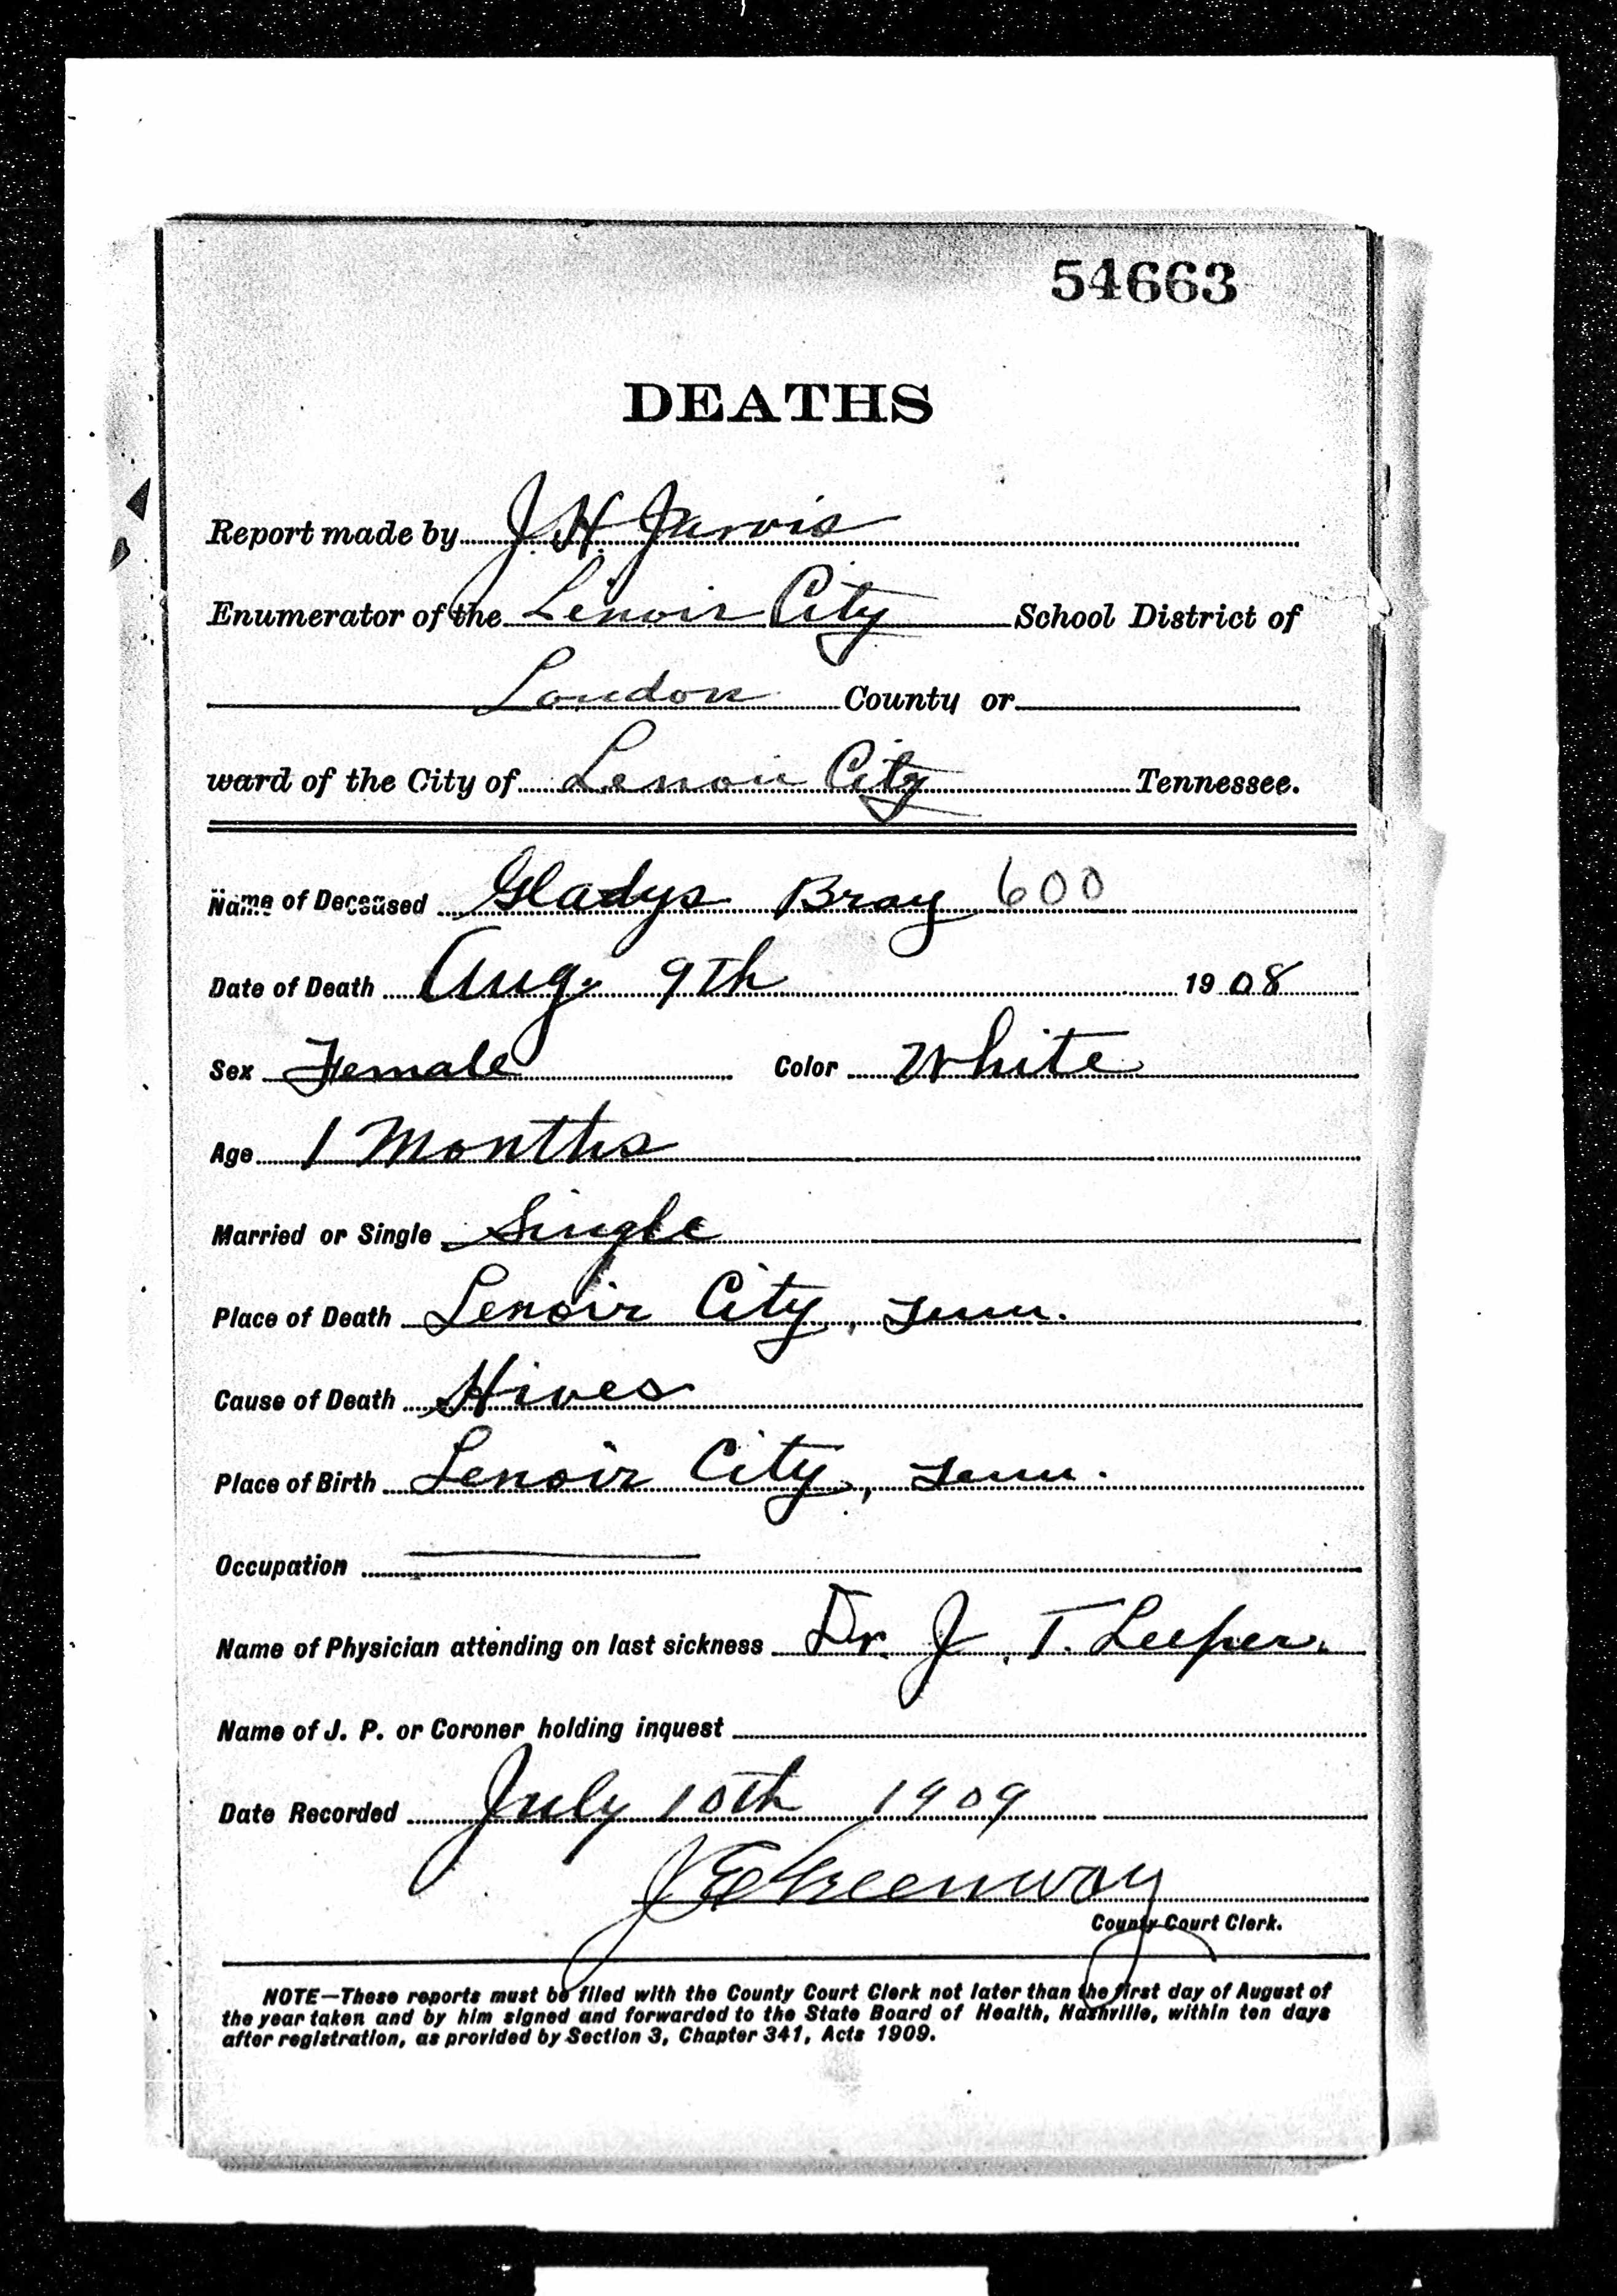 54663
DEATHS
Report made by J. H. Jarvis
Enumerator of the Lenoir City School District of
Loudon County or
ward of the City of Lenoir City Tennessee.
Name of Deceased Gladys Bray 600
Date of Death Aug. 9th 1908
Sex Female Color White
Age 1 Months
Married or Single Single
Place of Death Lenoir City, Tenn.
Cause of Death Hives
Place of Birth Lenoir City, Tenn.
Occupation
Name of Physician attending on last sickness Dr. J. T. Leeper.
Name of J. P. or Coroner holding inquest
Date Recorded July 10th 1909
J E Greenway
County Court Clerk.
NOTE—These reports must be filed with the County Court Clerk not later than the first day of August of
the year taken and by him signed and forwarded to the State Board of Health, Nashville, within ten days
after registration, as provided by Section 3, Chapter 341, Acts 1909.